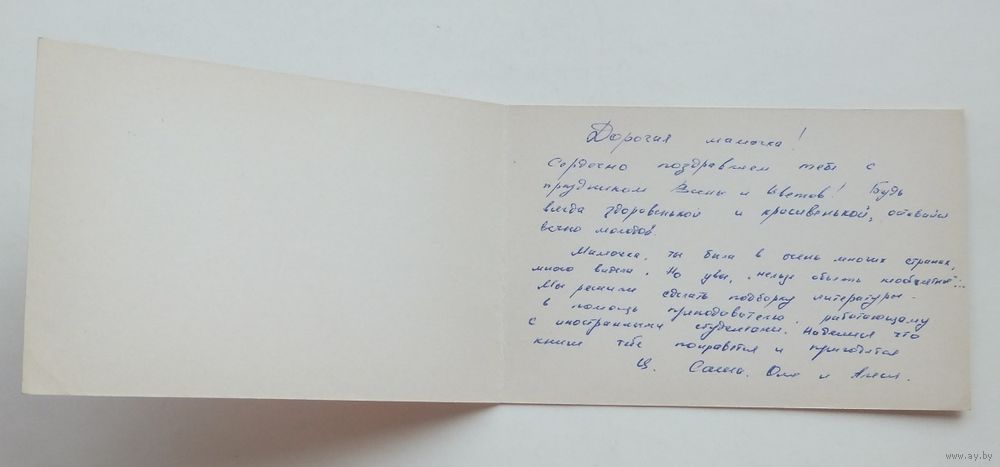 Дорогая мамочка!
Сердечно поздравляем тебя с
праздником Весны и Цветов! Будь
всегда здоровенькой и красивенькой, оставайся
вечно молодой.
Мамочка, ты была в очень многих странах,
много видела. Но увы, "нельзя объять необъятное"...
Мы решили сделать подборку литературы
в помощь преподавателю, работающему
с иностранными студентами. Надеемся что
книги тебе понравятся и пригодятся
Ц. Саша, Оля и
www.ay.by